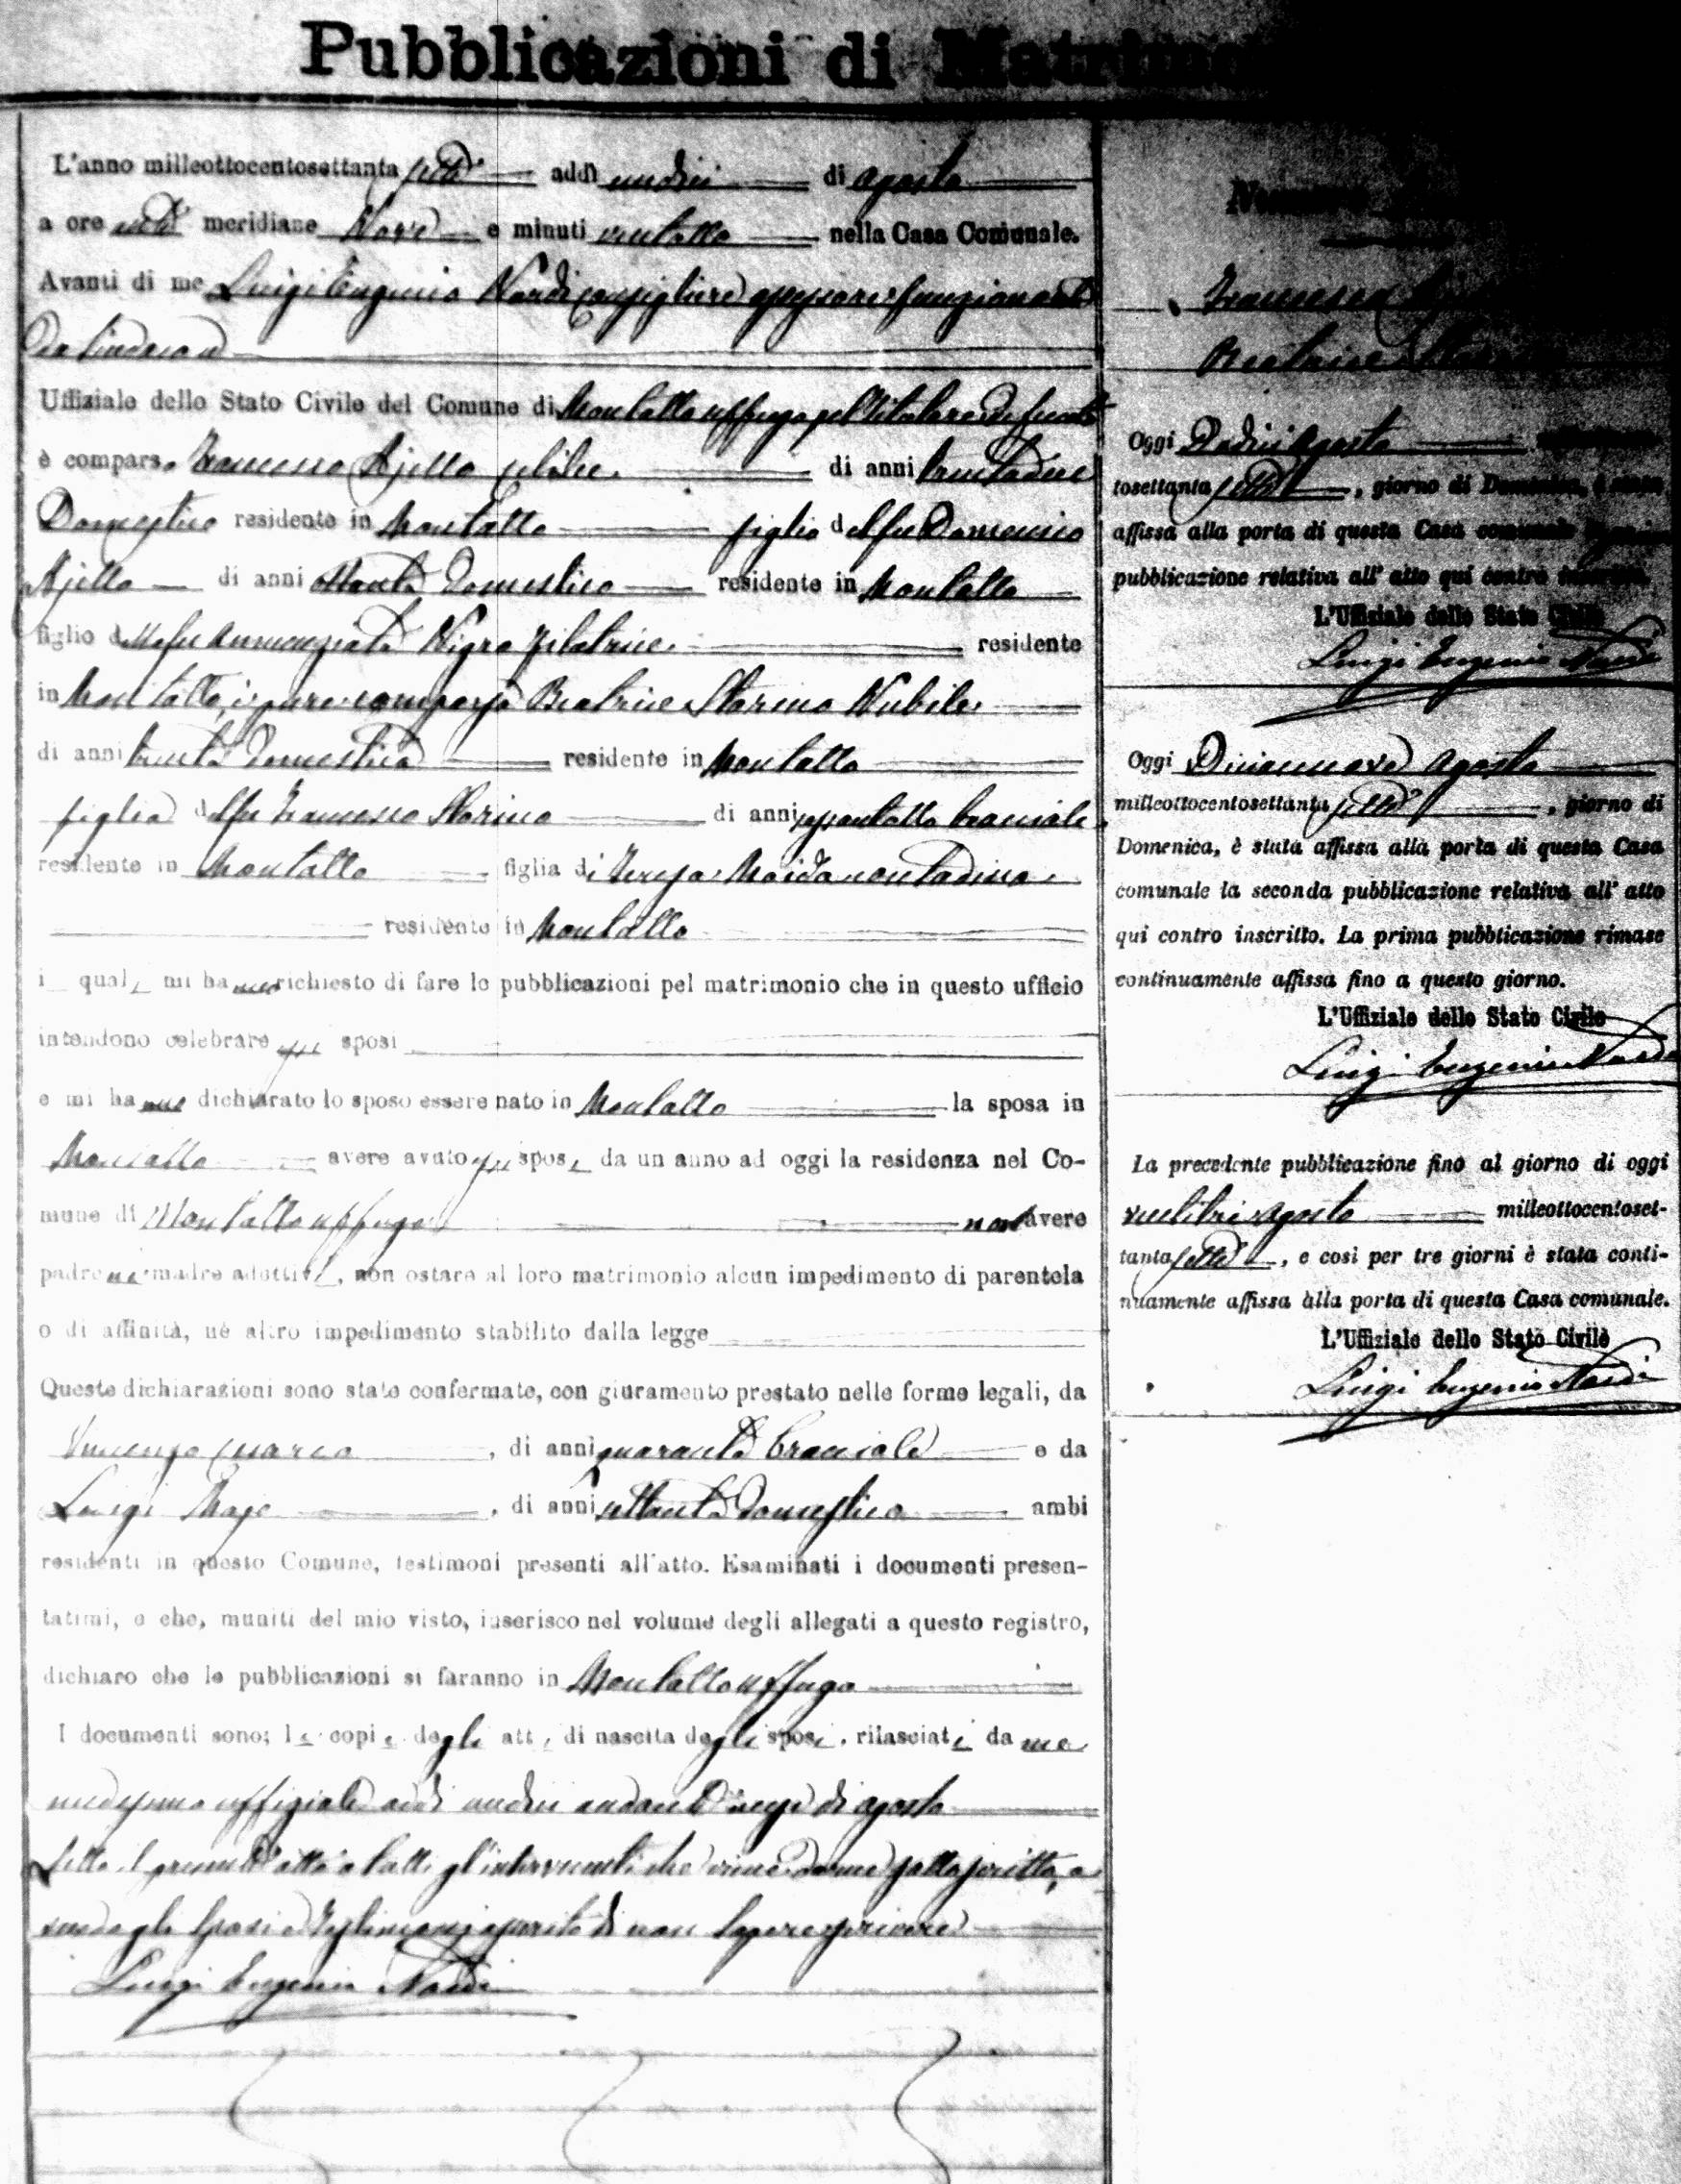 Pubblicazioni di
L'anno milleottocentosettanta sette addì undici di Agosto
a ore anti meridiane Nove e minuti ventotto nella Casa Comunale.
Avanti di me Luigi Eugenio Nardi consigliere assessore funzionante
da Sindaco
Uffiziale dello Stato Civile del Comune di Montalto Uffugo pel titolare
è comparso Francesco Ajello celibe di anni
Domestico residente in Montalto figlio del fu Domenico
Ajello di anni domestico residente in Montalto
figlio della fu Annunziata Nigro filatrice residente
in Montalto, è pure comparsa Beatrice Storino Nubile
di anni trenta domestica residente in Montalto
figlia del fu Francesco Storino di anni bracciale
residente in Montalto figlia di Teresa contadina
residente in Montalto
i quali mi hanno richiesto di fare le pubblicazioni pel matrimonio che in questo ufficio
intendono celebrare gli sposi
e mi hanno dichiarato lo sposo essere nato in Montalto la sposa in
Montalto avere avuto gli sposi da un anno ad oggi la residenza nel Co-
mune di Montalto Uffugo non avere
padre ne madre adottivi, non ostare al loro matrimonio alcun impedimento di parentela
o di affinità, nè altro impedimento stabilito dalla legge
Queste dichiarazioni sono state confermate, con giuramento prestato nelle forme legali, da
Vincenzo, di anni quaranta bracciale e da
Luigi, di anni settanta Domestico ambi
residenti in questo Comune, testimoni presenti all'atto. Esaminati i documenti presen-
tatimi, e che, muniti del mio visto, inserisco nel volume degli allegati a questo registro,
dichiaro che le pubblicazioni si faranno in Montalto Uffugo
I documenti sono; le copie degli atti di nascita degli sposi, rilasciati da me
medesimo uffiziale addì undici andante mese di agosto
Letto il presente atto a tutti gl'intervenuti che viene da me sottoscritto,
Sposi e Testimoni di non sapere scrivere
Luigi Eugenio Nardi
Francesco
Beatrice
Oggi Dodici Agosto
tosettanta sette, giorno di Domenica, è stata
affissa alla porta di questa Casa comunale
pubblicazione relativa all'atto qui contro
L'Uffiziale dello Stato Civile
Luigi Eugenio Nardi
Oggi Diciannove Agosto
milleottocentosettanta sette, giorno di
Domenica, è stata affissa alla porta di questa Casa
comunale la seconda pubblicazione relativa all'atto
qui contro inscritto. La prima pubblicazione rimase
continuamente affissa fino a questo giorno.
L'Uffiziale dello Stato Civile
Luigi Eugenio Nardi
La precedente pubblicazione fino al giorno di oggi
ventitre Agosto milleottocentoset-
tanta sette, e così per tre giorni è stata conti-
nuamente affissa alla porta di questa Casa comunale.
L'Uffiziale dello Stato Civile
Luigi Eugenio Nardi